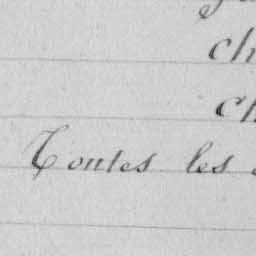 ch
ch
Toutes les